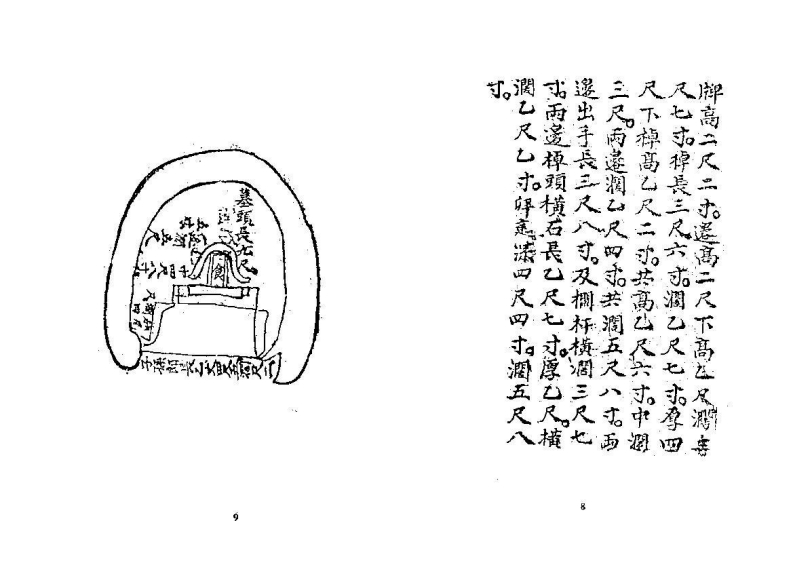 牌高二尺二寸。邊高二尺下高乙尺濶壹
尺七寸。棹長三尺六寸。濶乙尺七寸。厚四
尺下棹高乙尺二寸。共高乙尺六寸。中濶
三尺。兩邊濶乙尺四寸。共濶五尺八寸。兩
邊出手長三尺八寸。及欄杆橫濶三尺七
寸。兩邊棹頭橫石長乙尺七寸。厚乙尺。橫
濶乙尺乙寸。四尺四寸。濶五尺八
寸。
8
墓頭長九尺
中四尺八寸
9